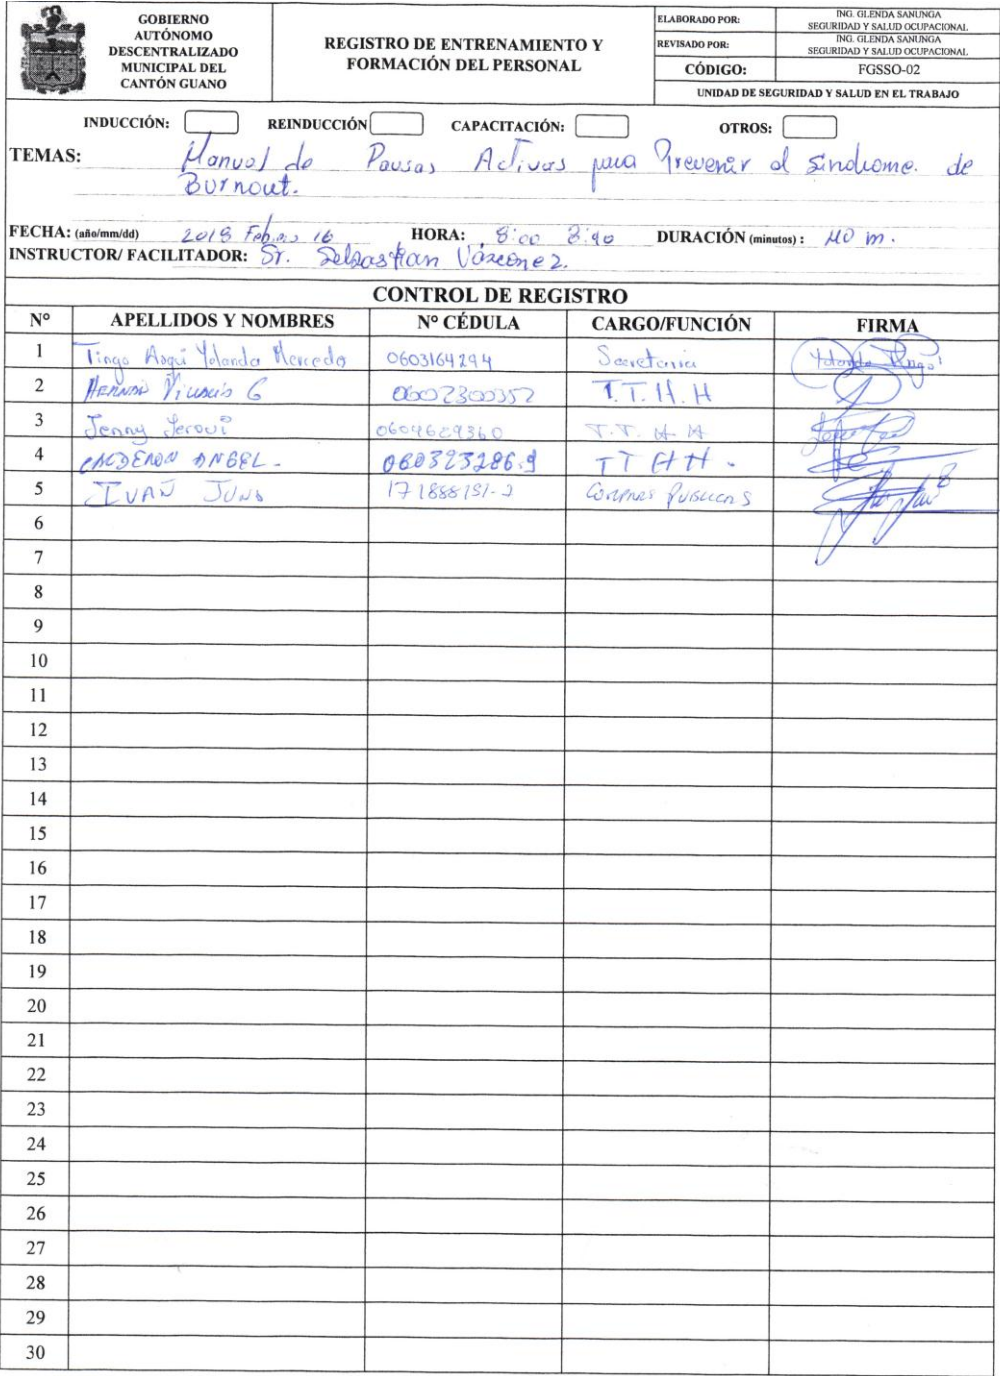 GOBIERNO
AUTÓNOMO
DESCENTRALIZADO
MUNICIPAL DEL
CANTÓN GUANO
REGISTRO DE ENTRENAMIENTO Y
FORMACIÓN DEL PERSONAL
ELABORADO POR: ING. GLENDA SANUNGA
SEGURIDAD Y SALUD OCUPACIONAL
REVISADO POR: ING. GLENDA SANUNGA
SEGURIDAD Y SALUD OCUPACIONAL
CÓDIGO: FGSSO-02
UNIDAD DE SEGURIDAD Y SALUD EN EL TRABAJO
INDUCCIÓN: REINDUCCIÓN CAPACITACIÓN: OTROS:
TEMAS: Manual de Pausas Activas para Prevenir el sindrome. de
Burnout.
FECHA: (año/mm/dd) 2018 16 HORA: 8:00 DURACIÓN (minutos) : 40 m.
INSTRUCTOR/ FACILITADOR: Sr. Sebastian Vásconez.
CONTROL DE REGISTRO
N° APELLIDOS Y NOMBRES N° CÉDULA CARGO/FUNCIÓN FIRMA
1 Tingo Yolanda Mercedes 0603164294 Secretaria Yolanda Tingo
2 HERNAN G 0602300352 T.T.H.H
3 Jenny 0604629360 T.T.H.H
4 CALDERON ANGEL. 060323286-9 TTHH.
5 IVAÑ 171888191-2 COMPRAS PUBLICAS
6
7
8
9
10
11
12
13
14
15
16
17
18
19
20
21
22
23
24
25
26
27
28
29
30